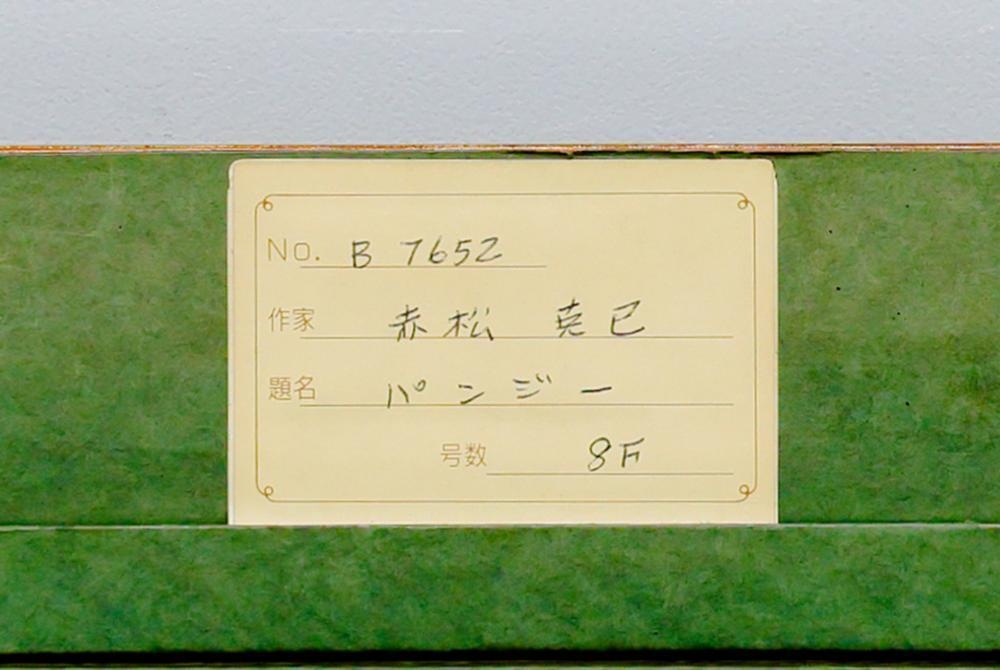 No. B 7652
作家 赤松 克已
題名 パンジー
号数 8F